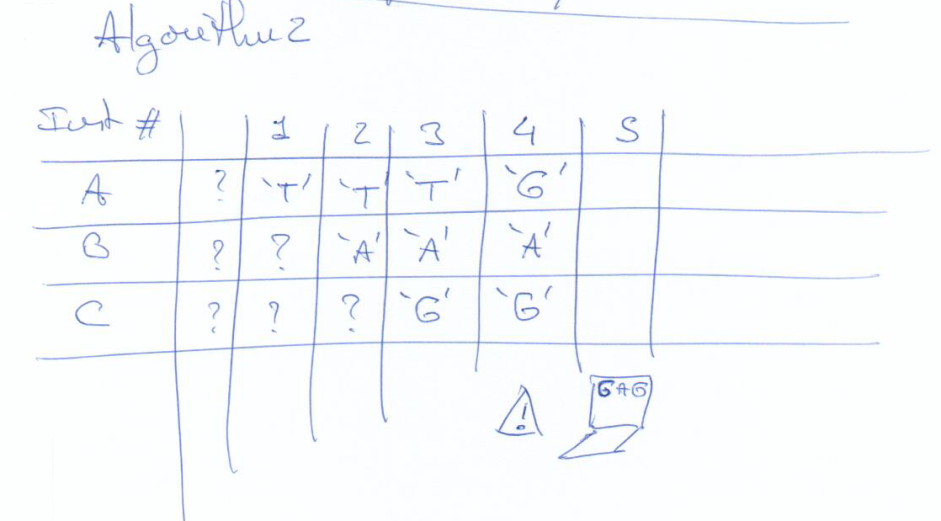 Algorithm 2
Inst # 1 2 3 4 5
A ? 'T' 'T' 'T' 'G'
B ? ? 'A' 'A' 'A'
C ? ? ? 'G' 'G'
! GAG